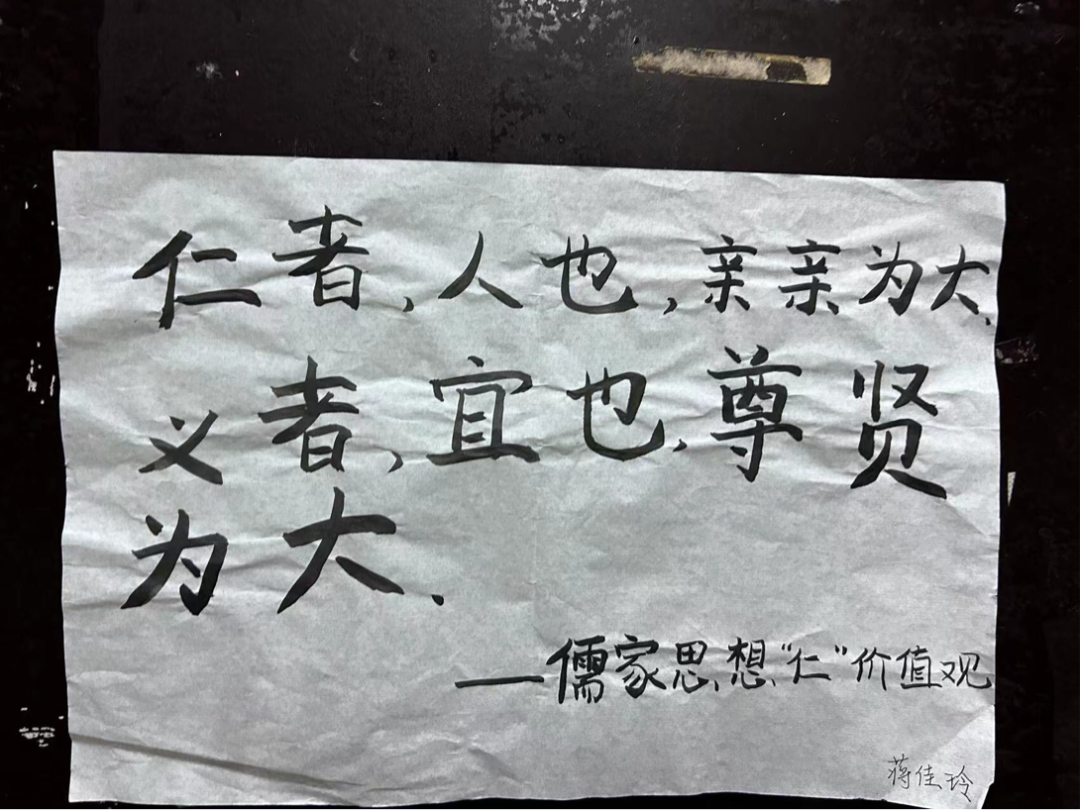 仁者,人也,亲亲为大.
义者,宜也,尊贤
为大.
—儒家思想“仁”价值观
蒋佳玲